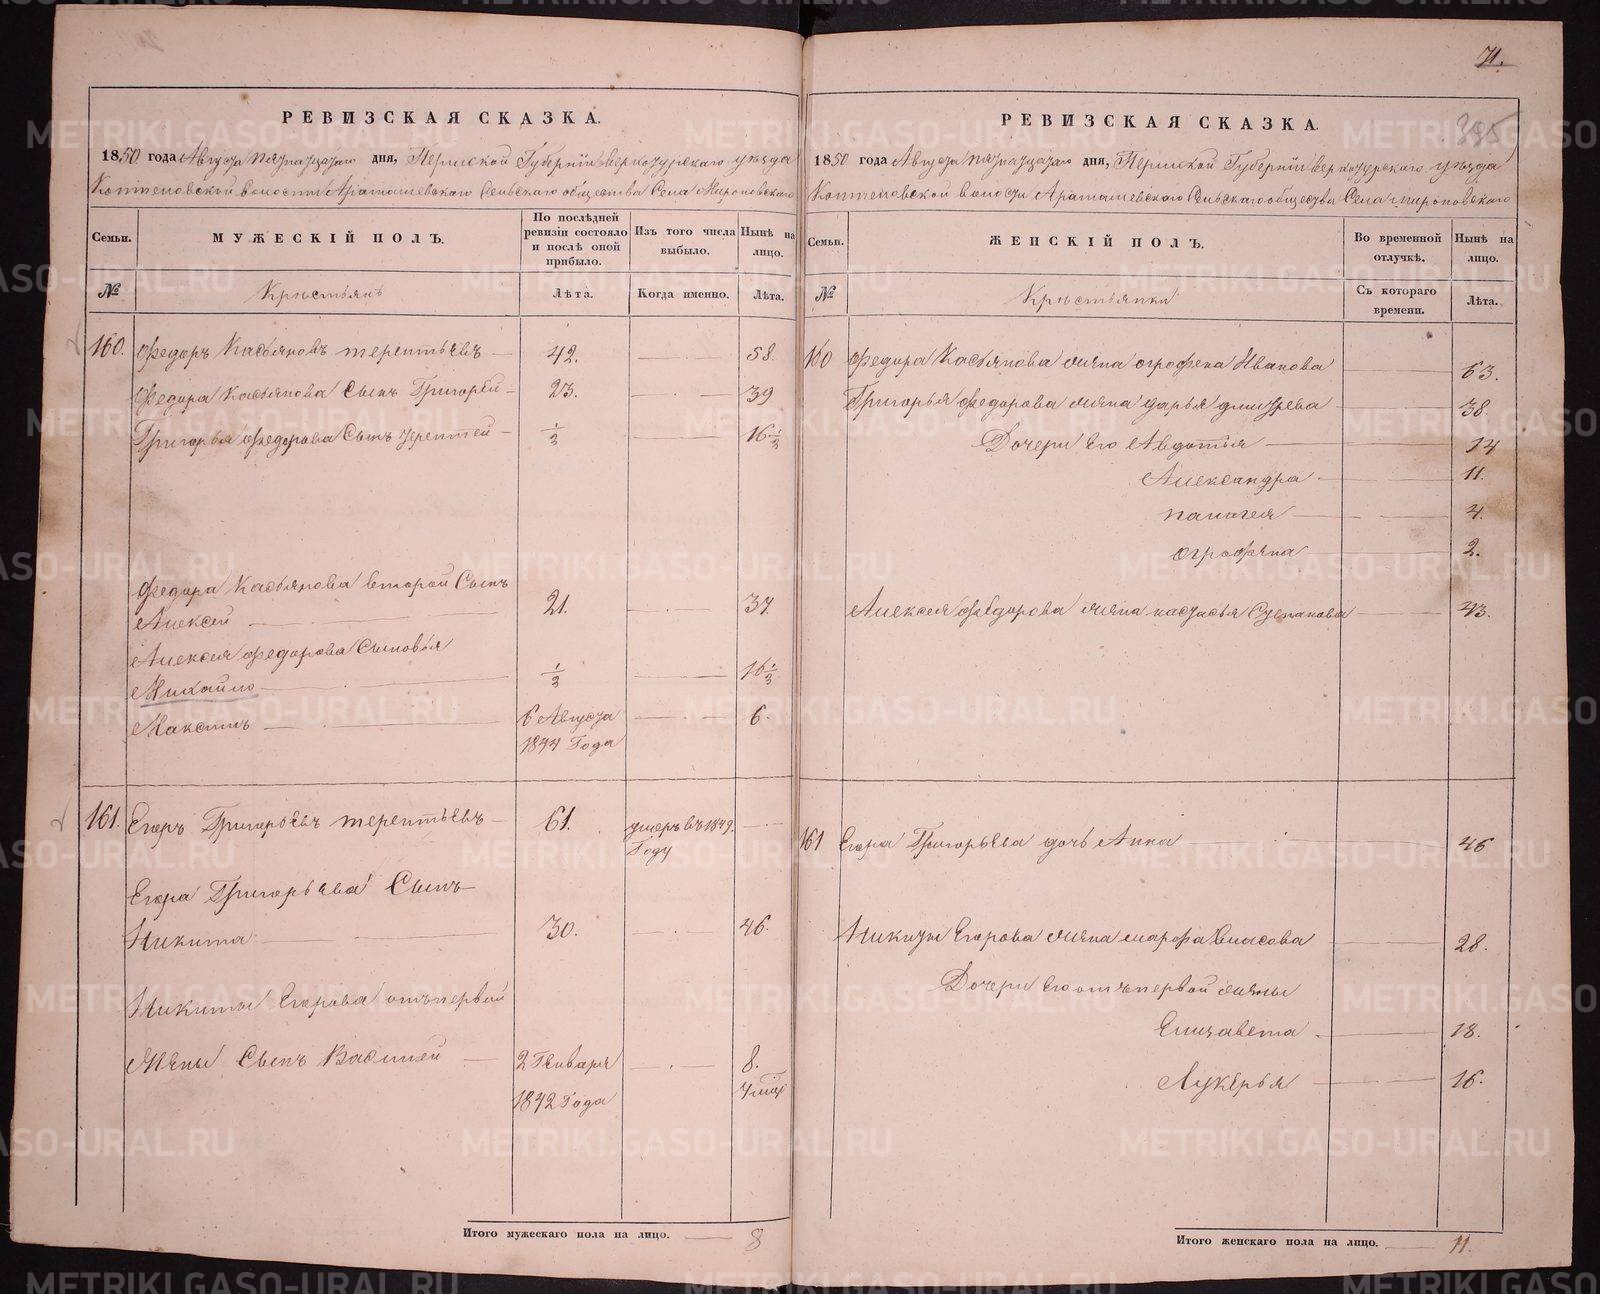 РЕВИЗСКАЯ СКАЗКА.
1850 года Августа пятнадцатаго дня, Пермской Губернiи верхотурскаго уѣзда
Коптеловской волости Арамашевскаго Сельскаго общества Села Мироновскаго
Семьи.
МУЖЕСКIЙ ПОЛЪ.
По послѣдней ревизiи состояло и послѣ оной прибыло.
Изъ того числа выбыло.
Нынѣ на лицо.
№
Крѣстьянъ
Лѣта.
Когда именно.
Лѣта.
160. Федоръ Касьяновъ терентьевъ — 42. — 58.
Федора Касьянова Сынъ Григорей — 23. — 39
Григорья федорова Сынъ терентей — 1/2 16 1/2
Федора Касьянова второй Сынъ
Алексей — 21. — 37.
Алексея федорова Сыновья
Михайло — 1/2 — 16 1/2
Максимъ — 6 Августа — 6.
1844 Года
161. Егоръ Григорьевъ терентьевъ — 61. умеръ въ 1849. —
Году
Егора Григорьева Сынъ
Никита — 30. — 46.
Никиты Егорова отъ первой
жены Сынъ Василей — 2 Генваря — 8.
1842 Года 7 мѣс
Итого мужескаго пола на лицо. — 8
71.
395
РЕВИЗСКАЯ СКАЗКА.
1850 года Августа пятнадцатаго дня, Пермской Губернiи верхотурскаго уѣзда
Коптеловской волости Арамашевскаго Сельскаго общества Села мироновскаго
Семьи.
ЖЕНСКIЙ ПОЛЪ.
Во временной отлучкѣ.
Нынѣ на лицо.
№
Крѣстьянки
Съ котораго времени.
Лѣта.
160 Федора Касьянова жена огрофена Иванова — 63.
Григорья федорова жена дарья дмитрева — 38.
Дочери Его Авдотья — 14
Александра — 11.
палагея — 4.
огрофена — 2.
Алексея федорова жена настасья Степанова — 43.
161 Егора Григорьева дочь Анна — 46
Никиты Егорова жена марфа власова — 28.
Дочери Его отъ первой жены
Елизавета — 18.
Лукерья — 16.
Итого женскаго пола на лицо. — 11.
METRIKI.GASO-URAL.RU